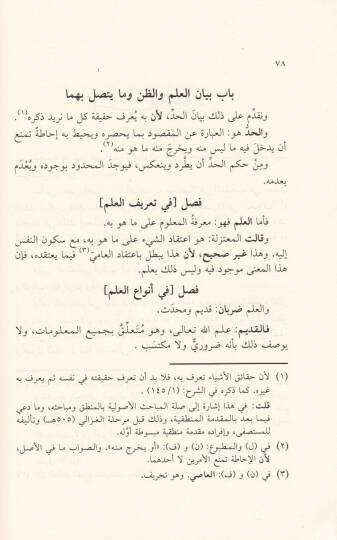 ٧٨
باب بيان العلم والظن وما يتصل بهما
ونقدِّم على ذلك بيانَ الحدِّ، لأن به يُعرف حقيقة كل ما نريد ذكره(١).
والحدُّ هو: العبارة عن المقصود بما يحصره ويحيط به إحاطةً تمنع
أن يدخلَ فيه ما ليس منه ويخرجَ منه ما هو منه(٢).
ومِنْ حكم الحدِّ أن يطَّرد وينعكس، فيوجدَ المحدود بوجوده ويُعْدَم
بعدمه.
فصل [في تعريف العلم]
فأما العلم فهو: معرفةُ المعلوم على ما هو به.
وقالت المعتزلة: هو اعتقاد الشيء على ما هو به، مع سكون النفس
إليه. وهذا غير صحيح، لأن هذا يبطل باعتقاد العاميّ(٣) فيما يعتقده، فإن
هذا المعنى موجود فيه وليس ذلك بعلم.
فصل [في أنواع العلم]
والعلم ضربان: قديم ومحدَث.
فالقديم: علم الله تعالى، وهو مُتَعلِّقٌ بجميع المعلومات، ولا
يوصف ذلك بأنه ضروريٌّ ولا مكتسَب.
(١) لأن حقائق الأشياء تعرف به، فلا بد أن تعرف حقيقته في نفسه ثم يعرف به
غيره. كما ذكره في الشرح: (١/ ١٤٥).
قلت: في هذا إشارة إلى صلة المباحث الأصولية بالمنطق ومباحثه، وما دعي
فيما بعد بالمقدمة المنطقية، وذلك قبل مرحلة الغزالي (٥٠٥هـ) وتأليفه
للمستصفى، وإفراده مقدمة منطقية مبسوطة أوَّله.
(٢) في (ل) والمطبوع: (ن) و (ف): «أو يخرج منه». والصواب ما في الأصل،
لأن الإحاطة تمنع الأمرين لا أحدهما.
(٣) في (ن) و (ف): العاصي. وهو تحريف.